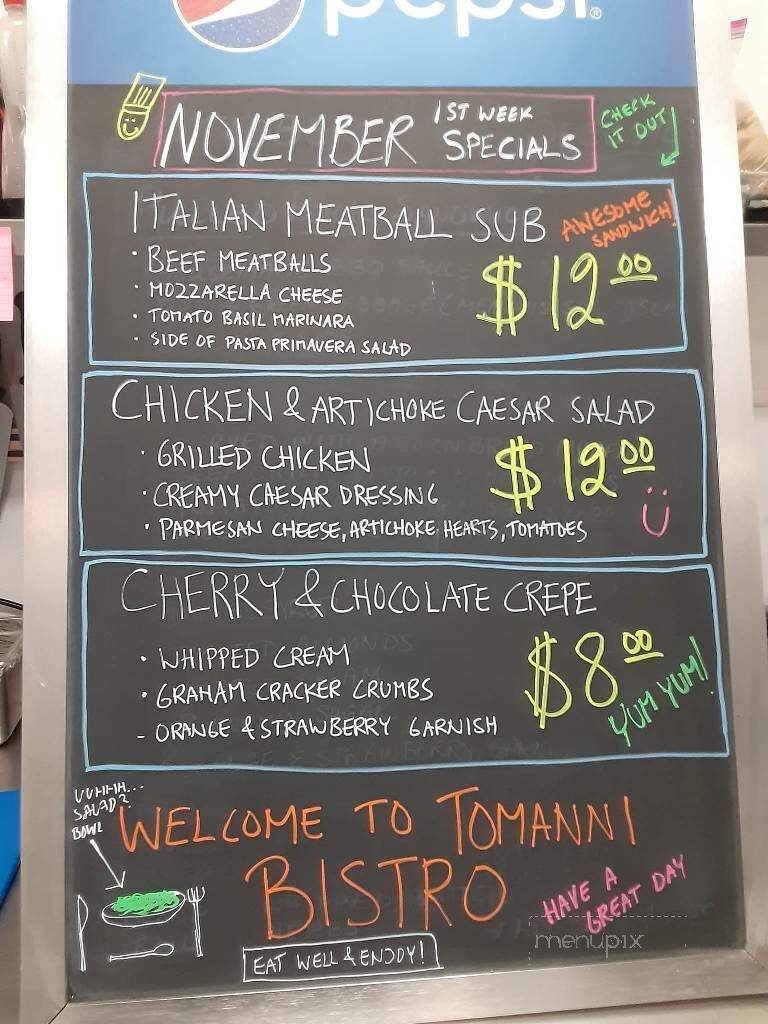 pepsi®
NOVEMBER 1ST WEEK SPECIALS
CHECK IT OUT
ITALIAN MEATBALL SUB
AWESOME SANDWICH!
• BEEF MEATBALLS
• MOZZARELLA CHEESE
• TOMATO BASIL MARINARA
• SIDE OF PASTA PRIMAVERA SALAD
$12.00
CHICKEN & ARTICHOKE CAESAR SALAD
• GRILLED CHICKEN
• CREAMY CAESAR DRESSING
• PARMESAN CHEESE, ARTICHOKE HEARTS, TOMATOES
$12.00
CHERRY & CHOCOLATE CREPE
• WHIPPED CREAM
• GRAHAM CRACKER CRUMBS
- ORANGE & STRAWBERRY GARNISH
$8.00
YUM YUM!
SALAD?
BOWL
WELCOME TO TOMANNI
BISTRO
HAVE A
GREAT DAY
EAT WELL & ENJOY!
menupix